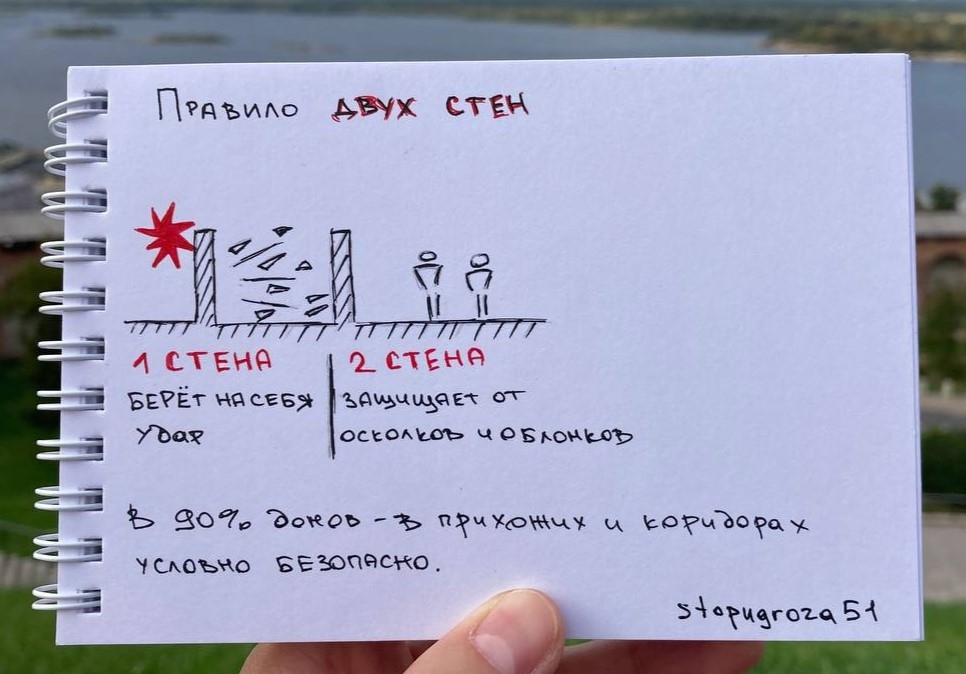 Правило ДВУХ СТЕН
1 СТЕНА
БЕРЁТ НА СЕБЯ
УДАР
2 СТЕНА
ЗАЩИЩАЕТ ОТ
ОСКОЛКОВ И ОБЛОМКОВ
В 90% домов - в прихожих и коридорах
условно БЕЗОПАСНО.
stopugroza51